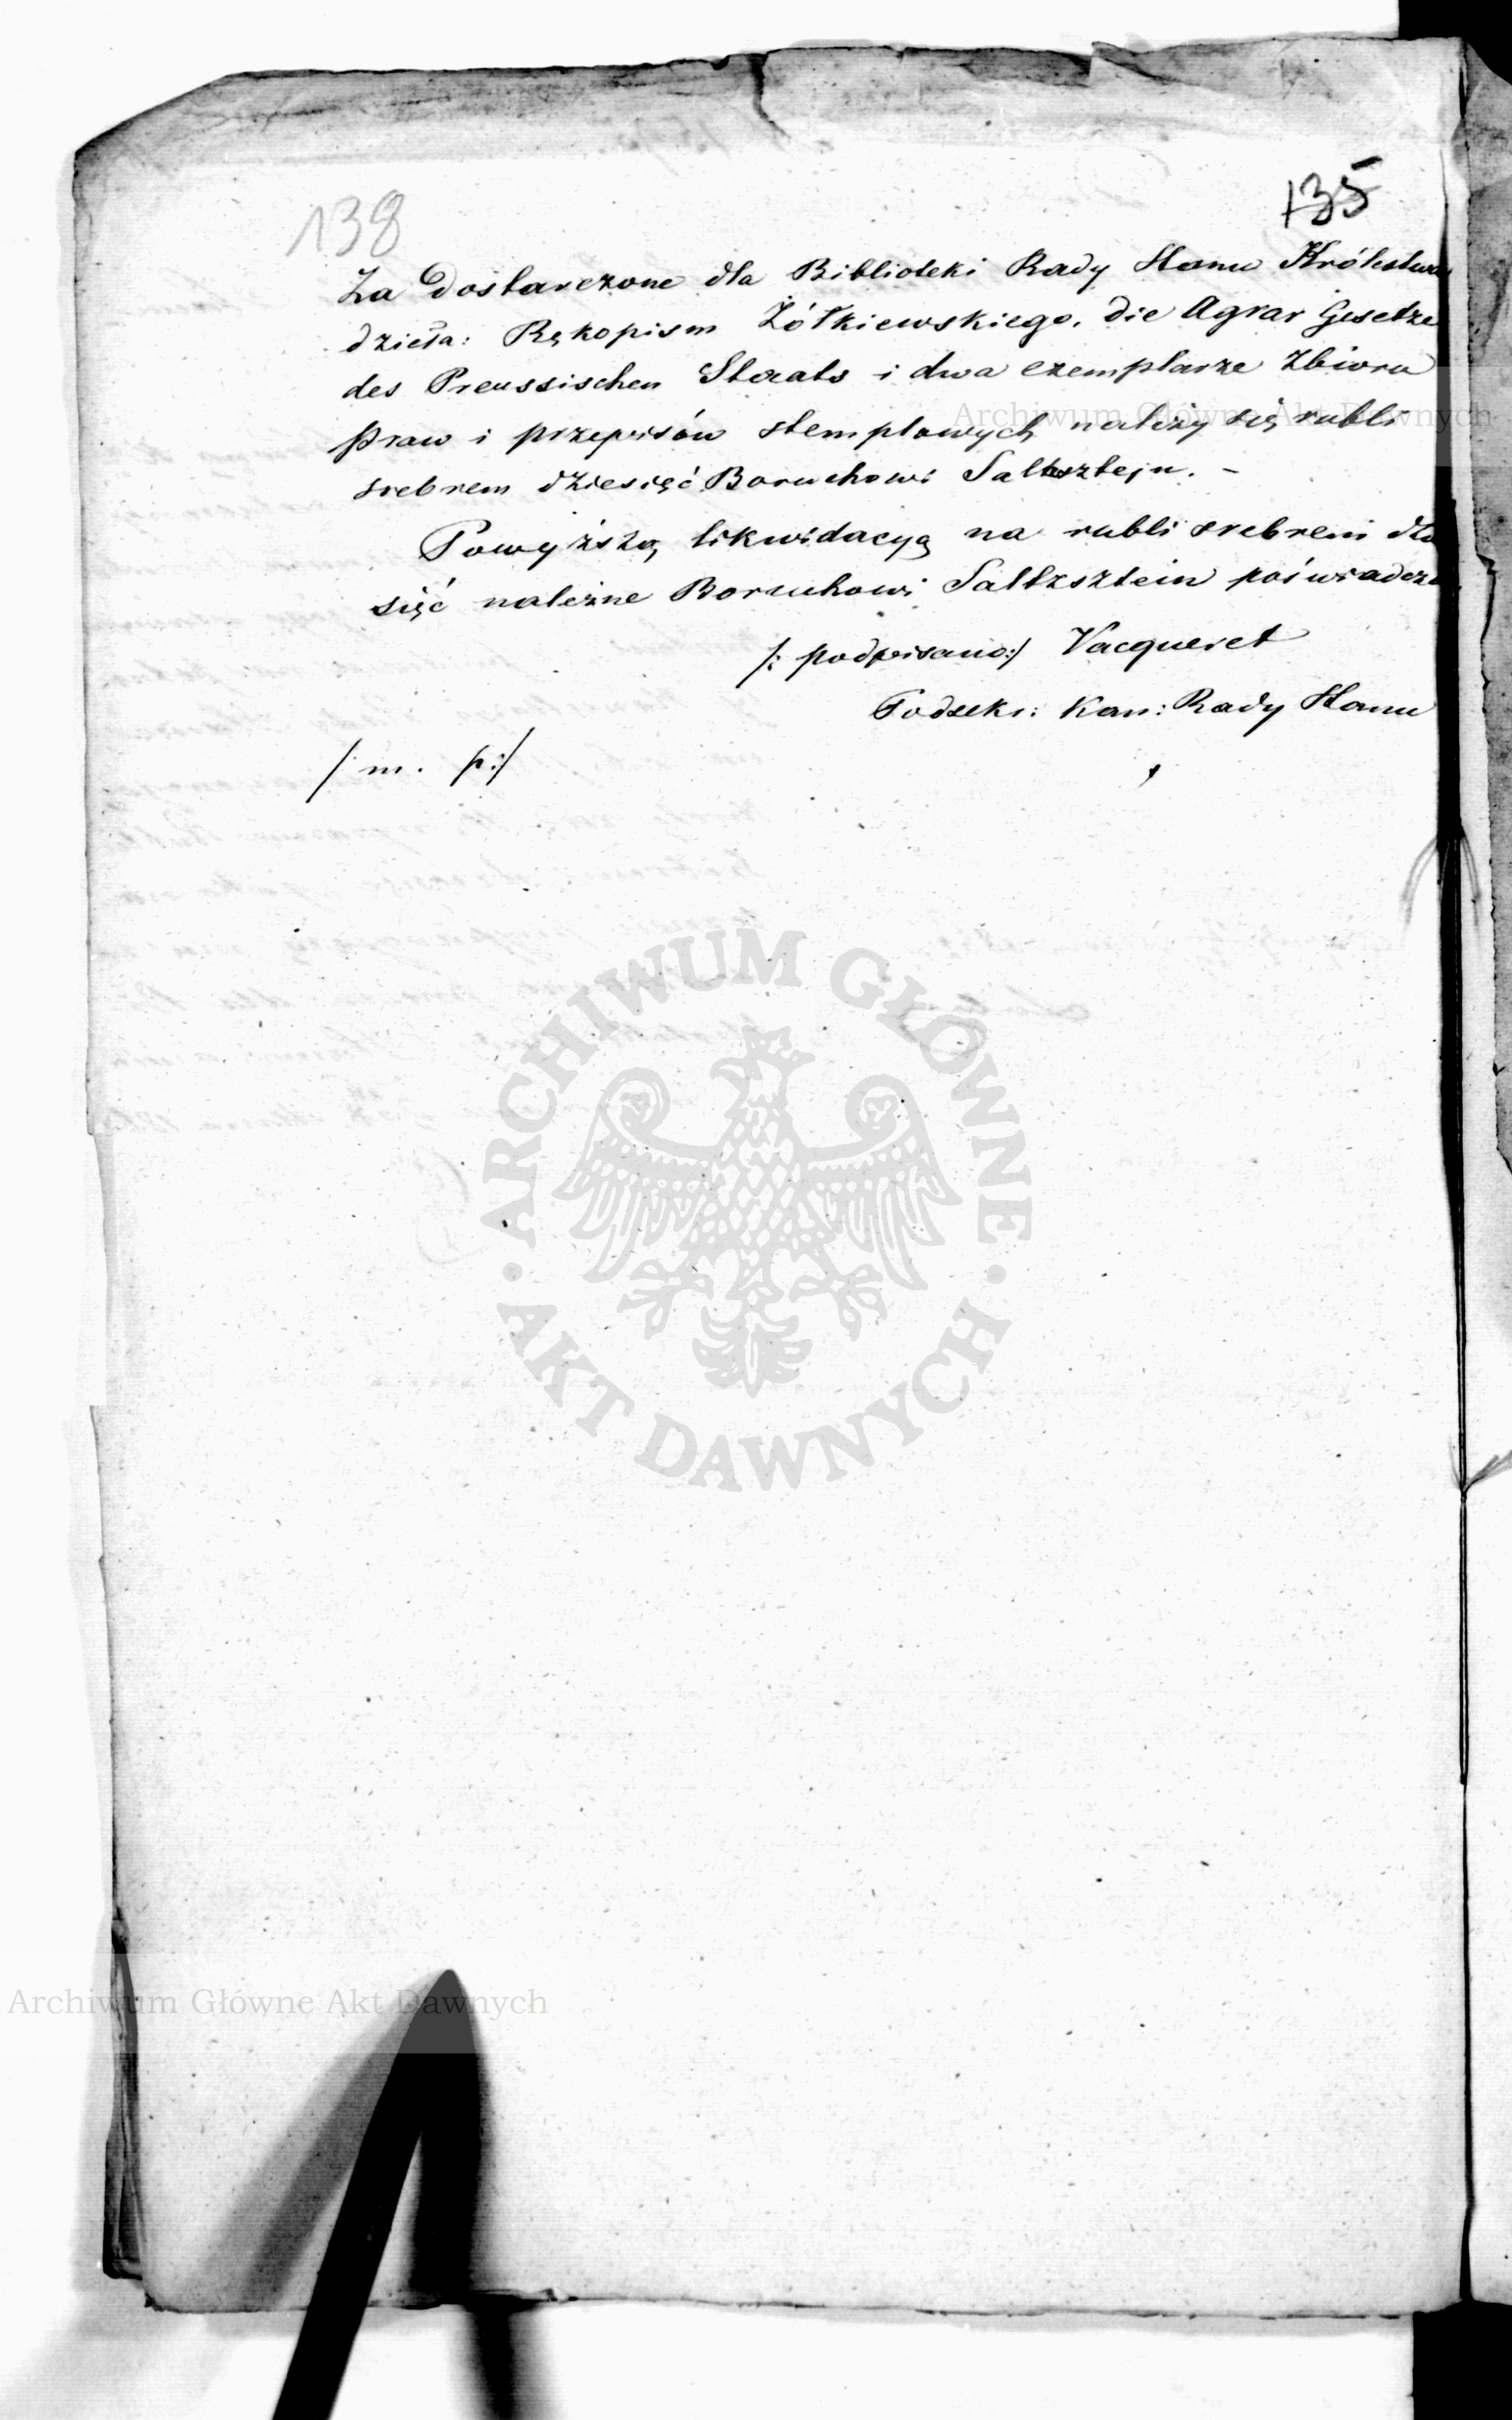 138
135
Za dostarczone dla Biblioteki Rady Stanu Królestwa
dzieła: Rękopism Żółkiewskiego, die Agrar Gesetze
des Preussischen Staats i dwa exemplarze Zbioru
Praw i przepisów stemplowych należy się rubli
srebrem dziesięć Boruchowi Saltzsztejn. –
Powyższą likwidacyą na rubli srebrem dzie
sięć należne Boruchowi Saltzsztein poświadcza
/: podpisano:/ Vacqueret
Podsekr: Kan: Rady Stanu
/: m. p:/
ARCHIWUM GŁÓWNE
AKT DAWNYCH
Archiwum Główne Akt Dawnych
Archiwum Główne Akt Dawnych